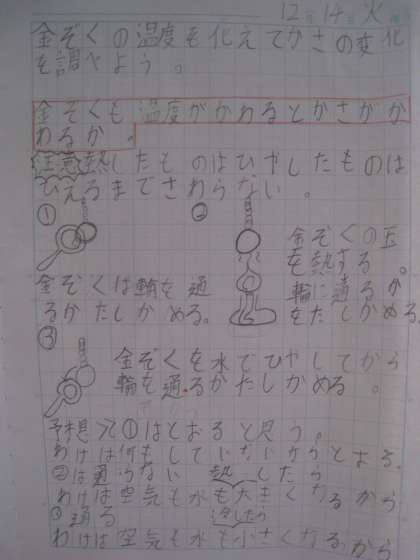 12月14日火
金ぞくの温度も化えてかさの変化
を調べよう。
金ぞくも温度がかわるとかさがか
わるか。
注意熱したものはひやしたものは
ひえるまでさわらない。
①
②
金ぞくの玉
を熱する。
輪に通るか
をたしかめる。
金ぞくは輪を通
るかたしかめる。
③
金ぞくを水でひやしてから
輪を通るかたしかめる。
予想 ①はとおると思う。
わけは何もしていないからとおる。
②は通らない 熱したら
わけは空気も水も大きくなるから
③通る 冷したら
わけは空気も水も小さくなるから